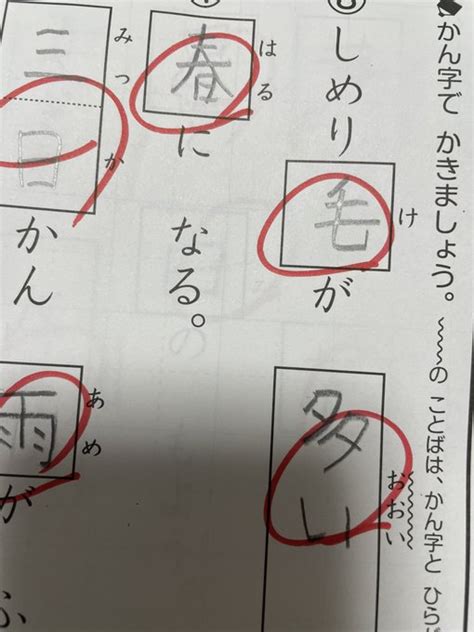 かん字で かきましょう。 の ことばは、かん字と ひら
しめり毛が 多い
け おおい
春に なる。
はる
三日かん 雨が ふ
みっか あめ